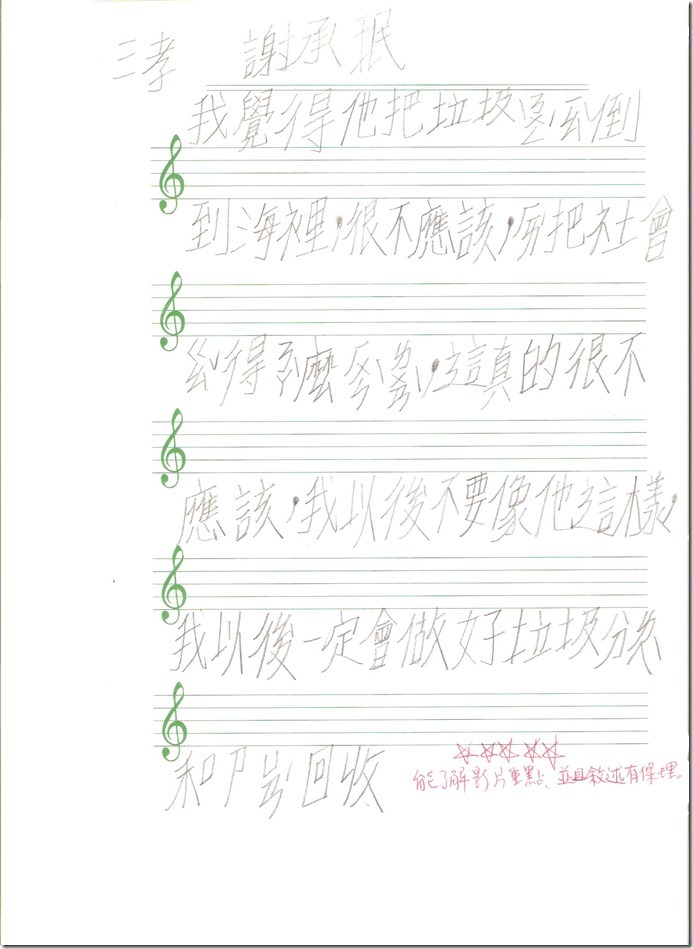 三孝 謝承珉
我覺得他把垃圾倒
到海裡，很不應該，把社會
得麼，這真的很不
應該，我以後不要像他這樣，
我以後一定會做好垃圾分
和回收
能了解影片重點、並且敘述有條理。